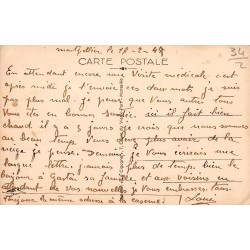 Montpellier le 18-2-48
34
2
CARTE POSTALE
En attendant encore une visite medicale cet
après midi je t'envoie ces deux mots je suis
pas plus mal. je pense que vous autres tous
vous êtes en bonne santée. ici il fait bien
chaud. il y a 3 jours je crois que nous sommes
au beau temps. vous plus avoir de la
neige je pense. Demain je vous écrirais une
longue lettre j'aurais plus de temps. bien le
bonjour à Gaston sa famille et aux voisins en
attendant de vos nouvelles je vous embrasse tous.
Toujours la même adresse à la caserne. Louis